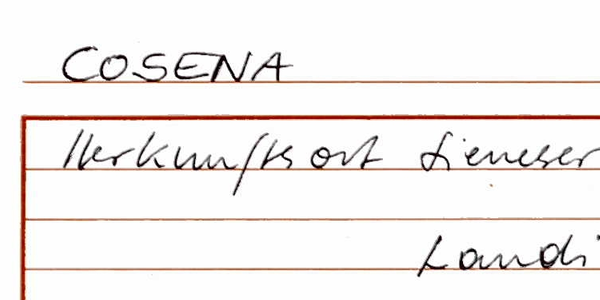 COSENA
Herkunftsort Sieneser
Landi